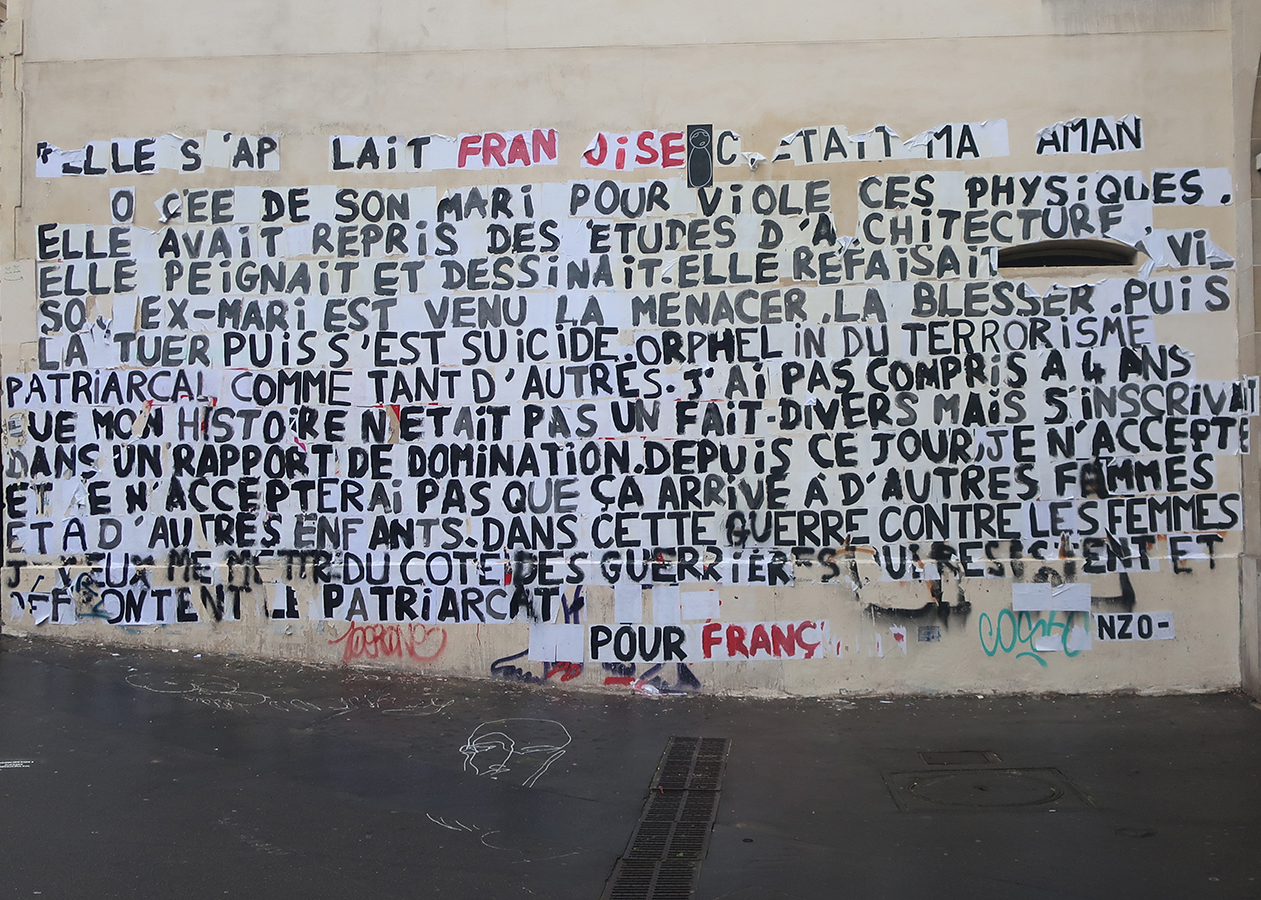 ELLE S'AP LAIT FRAN OISE C TAIT MA AMAN
O CÉE DE SON MARI POUR VIOLE CES PHYSIQUES.
ELLE AVAIT REPRIS DES ETUDES D'A CHITECTURE
ELLE PEIGNAIT ET DESSINAIT. ELLE REFAISAIT A VIE
SO EX-MARI EST VENU LA MENACER, LA BLESSER. PUIS
LA TUER PUIS S'EST SUICIDE. ORPHELIN DU TERRORISME
PATRIARCAL COMME TANT D'AUTRES. J'AI PAS COMPRIS A 4 ANS
QUE MON HISTOIRE N'ETAIT PAS UN FAIT-DIVERS MAIS S'INSCRIVAIT
DANS UN RAPPORT DE DOMINATION. DEPUIS CE JOUR, JE N'ACCEPTE
ET E N'ACCEPTERAI PAS QUE ÇA ARRIVE À D'AUTRES FAMMES
ET A D'AUTRES ENFANTS. DANS CETTE GUERRE CONTRE LES FEMMES
J VEUX ME METTRE DU COTE DES GUERRIERES UI RESISTENT ET
DEF ONTENT LE PATRIARCAT
POUR FRANÇ
NZO-